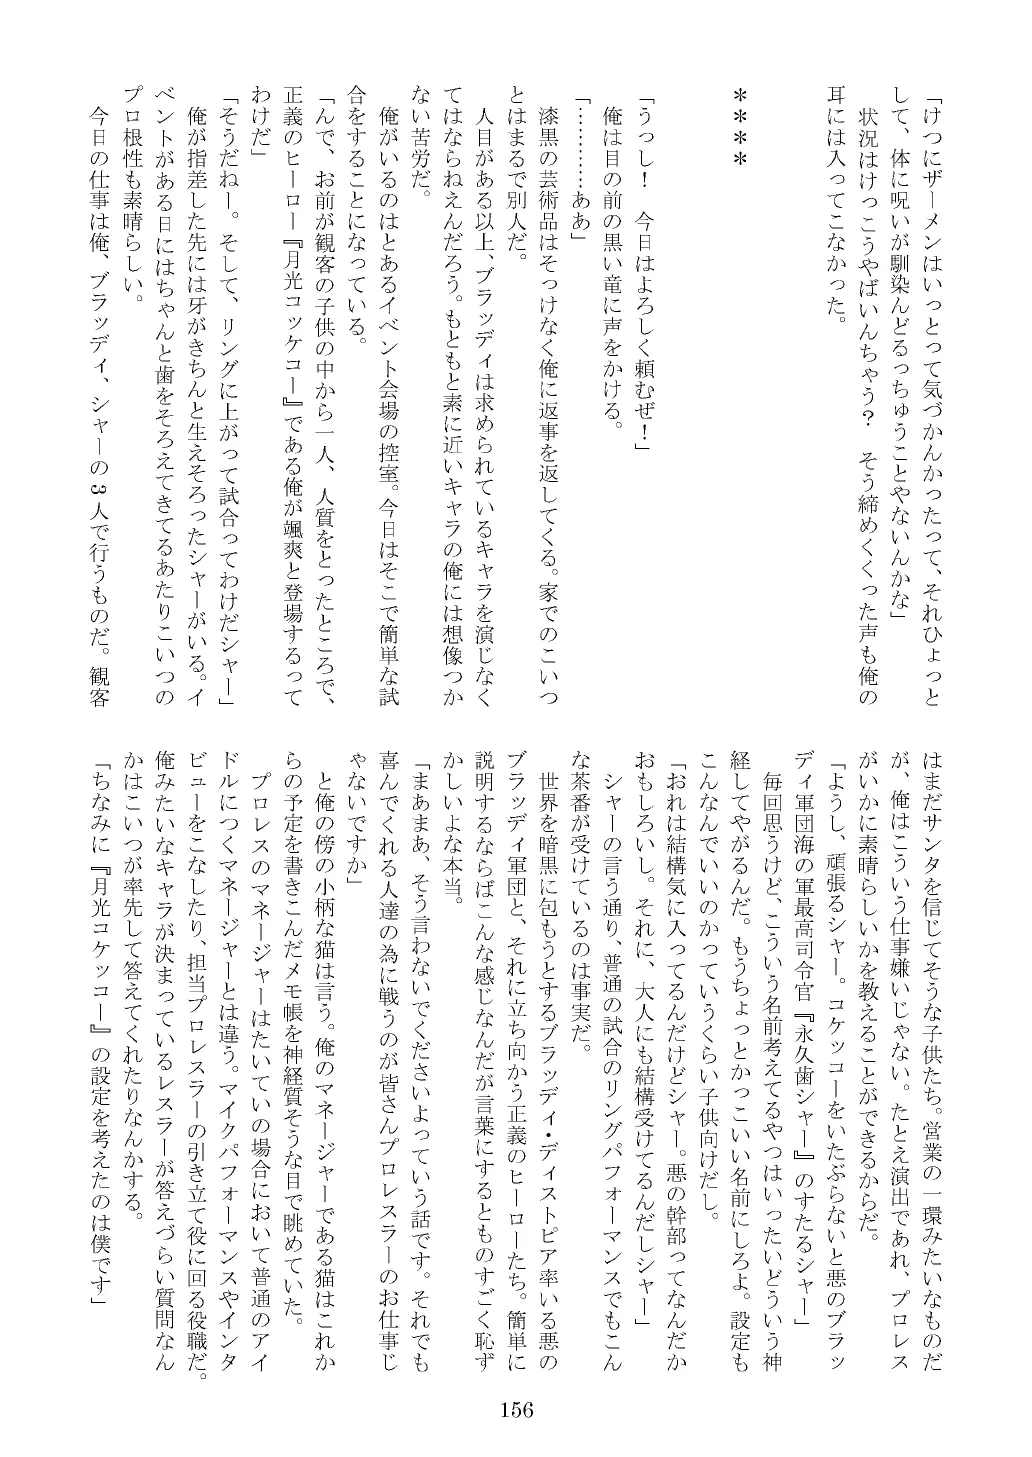 「けつにザーメンはいっとって気づかんかったって、それひょっと
して、体に呪いが馴染んどるっちゅうことやないんかな」
　状況はけっこうやばいんちゃう？　そう締めくくった声も俺の
耳には入ってこなかった。
＊＊＊＊
「うっし！　今日はよろしく頼むぜ！」
　俺は目の前の黒い竜に声をかける。
「…………ああ」
　漆黒の芸術品はそっけなく俺に返事を返してくる。家でのこいつ
とはまるで別人だ。
　人目がある以上、ブラッディは求められているキャラを演じなく
てはならねえんだろう。もともと素に近いキャラの俺には想像つか
ない苦労だ。
　俺がいるのはとあるイベント会場の控室。今日はそこで簡単な試
合をすることになっている。
「んで、お前が観客の子供の中から一人、人質をとったところで、
正義のヒーロー『月光コッケコー』である俺が颯爽と登場するって
わけだ」
「そうだねー。そして、リングに上がって試合ってわけだシャー」
　俺が指差した先には牙がきちんと生えそろったシャーがいる。イ
ベントがある日にはちゃんと歯をそろえてきてるあたりこいつの
プロ根性も素晴らしい。
　今日の仕事は俺、ブラッディ、シャーの3人で行うものだ。観客
はまだサンタを信じてそうな子供たち。営業の一環みたいなものだ
が、俺はこういう仕事嫌いじゃない。たとえ演出であれ、プロレス
がいかに素晴らしいかを教えることができるからだ。
「ようし、頑張るシャー。コケッコーをいたぶらないと悪のブラッ
ディ軍団海の軍最高司令官『永久歯シャー』のすたるシャー」
　毎回思うけど、こういう名前考えてるやつはいったいどういう神
経してやがるんだ。もうちょっとかっこいい名前にしろよ。設定も
こんなんでいいのかっていうくらい子供向けだし。
「おれは結構気に入ってるんだけどシャー。悪の幹部ってなんだか
おもしろいし。それに、大人にも結構受けてるんだしシャー」
　シャーの言う通り、普通の試合のリングパフォーマンスでもこん
な茶番が受けているのは事実だ。
　世界を暗黒に包もうとするブラッディ・ディストピア率いる悪の
ブラッディ軍団と、それに立ち向かう正義のヒーローたち。簡単に
説明するならばこんな感じなんだが言葉にするとものすごく恥ず
かしいよな本当。
「まあまあ、そう言わないでくださいよっていう話です。それでも
喜んでくれる人達の為に戦うのが皆さんプロレスラーのお仕事じ
ゃないですか」
　と俺の傍の小柄な猫は言う。俺のマネージャーである猫はこれか
らの予定を書きこんだメモ帳を神経質そうな目で眺めていた。
　プロレスのマネージャーはたいていの場合において普通のアイ
ドルにつくマネージャーとは違う。マイクパフォーマンスやインタ
ビューをこなしたり、担当プロレスラーの引き立て役に回る役職だ。
俺みたいなキャラが決まっているレスラーが答えづらい質問なん
かはこいつが率先して答えてくれたりなんかする。
「ちなみに『月光コケッコー』の設定を考えたのは僕です」
156